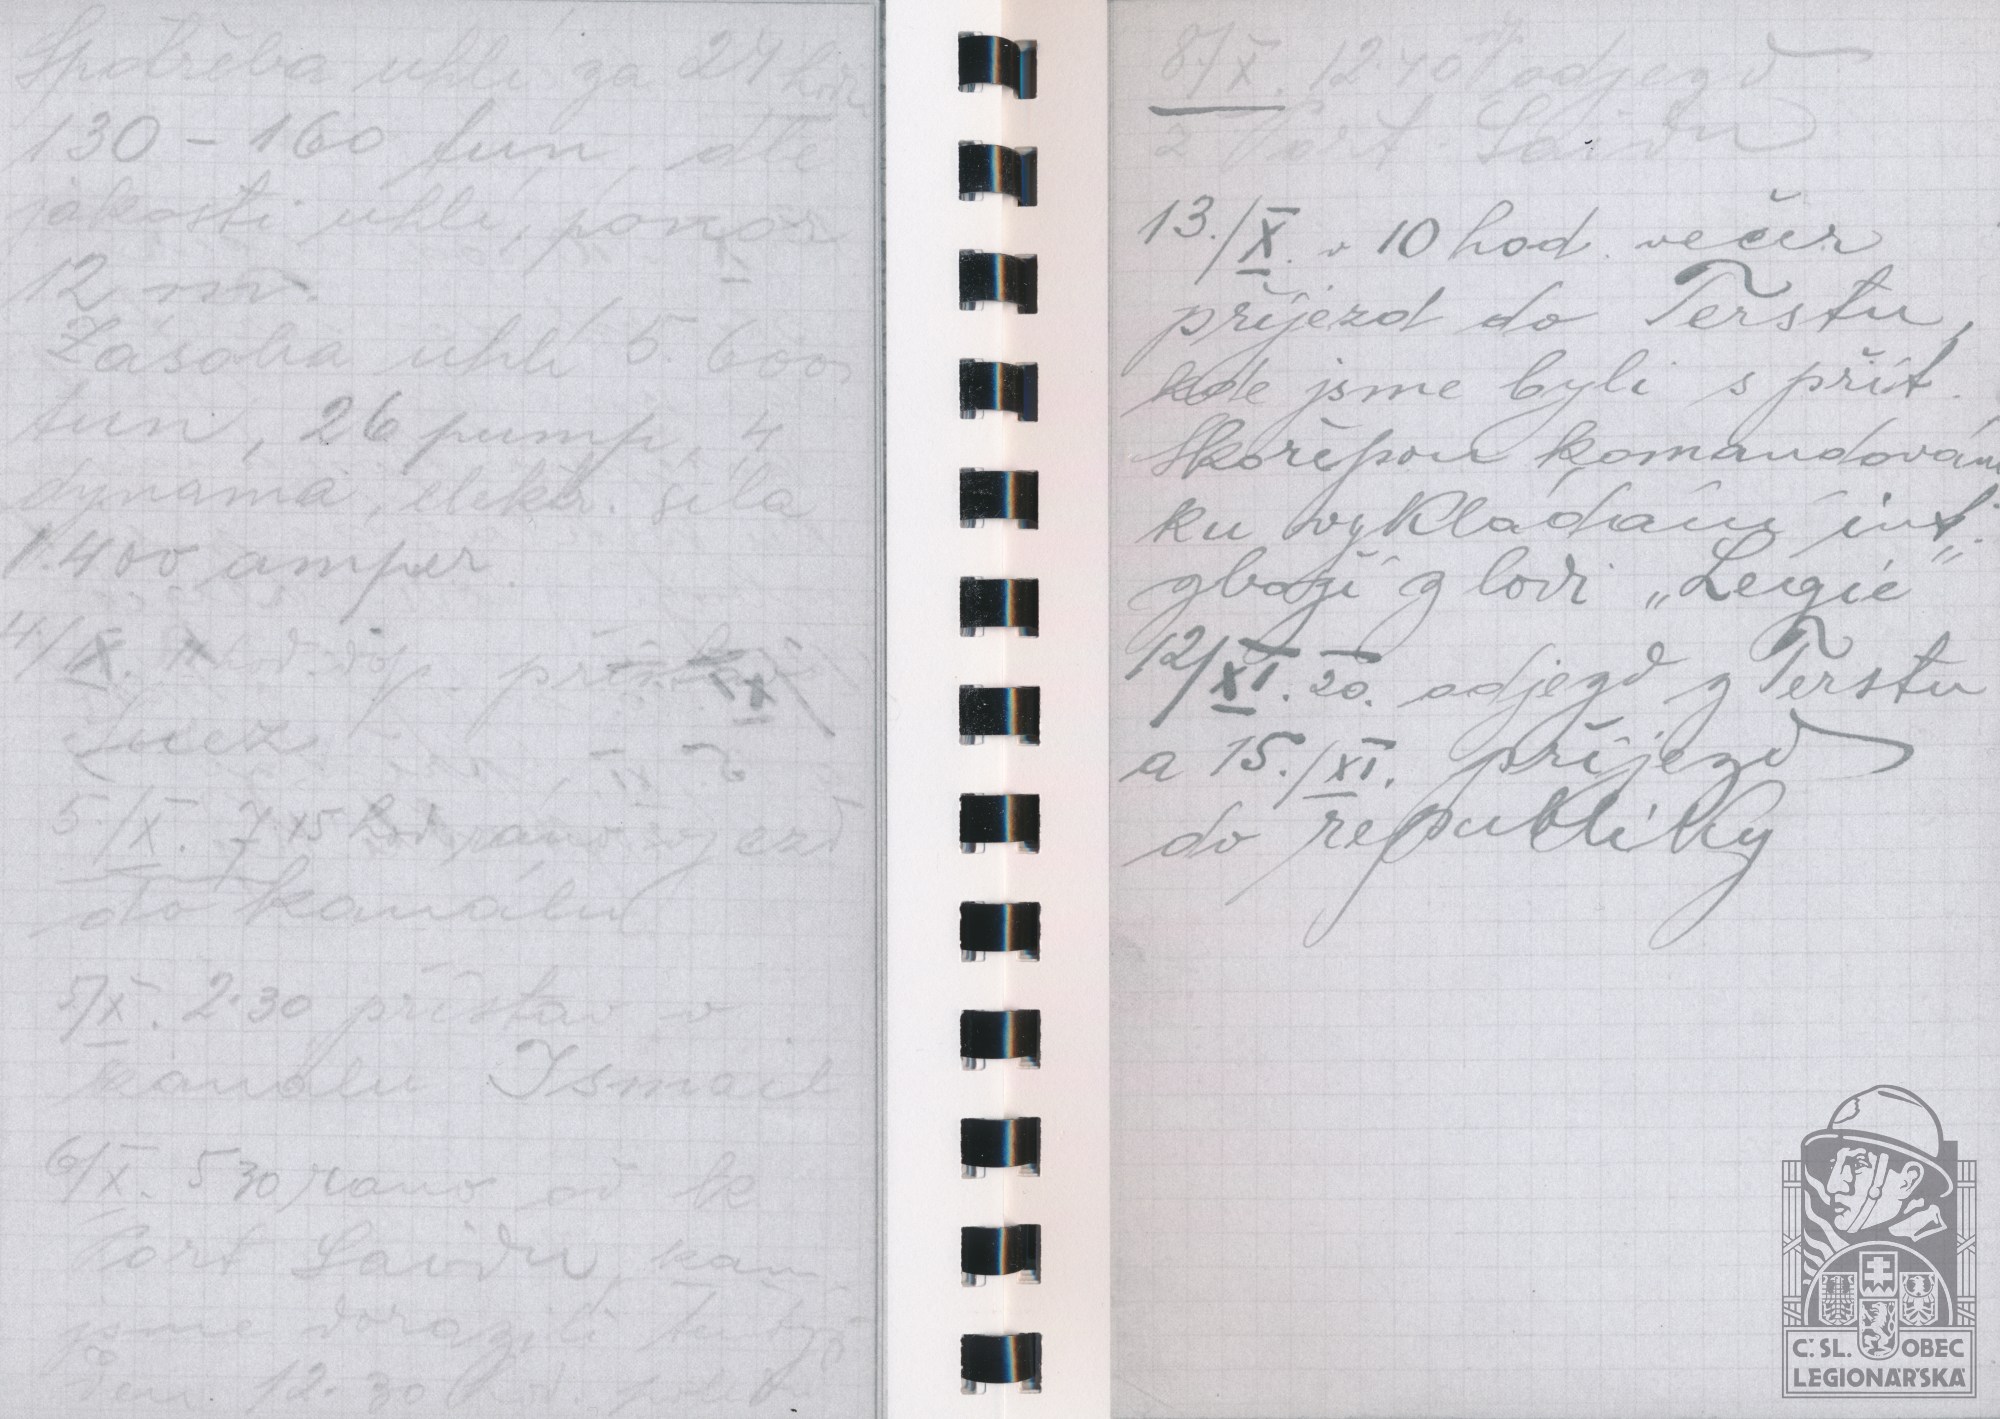 Spotřeba uhlí za 24 hodin
130 – 160 tun, dle
jakosti uhlí, ponor
12 mtr.
Zásoba uhlí 5.600
tun, 26 pump, 4
dynama, elektr. síla
1.400 amper.
4./X. hod. dop.
Suez
5./X. 7.15 hod ráno vjezd
do kanálu
5/X. 2.30 přístav v
kanálu Ismail
6/X. 5 30 ráno od
Port Saidu, kam
jsme dorazili tu
12.30 hod.
8./X. 12.40 odjezd
z Port Saidu
13./X. v 10 hod. večer
příjezd do Terstu,
kde jsme byli s přít.
Skořepou komandován
ku vykládání int.
zboží z lodi „Legie“
12/XI. 20. odjezd z Terstu
a 15./XI. příjezd
do republiky
Č. SL. OBEC
LEGIONÁŘSKÁ